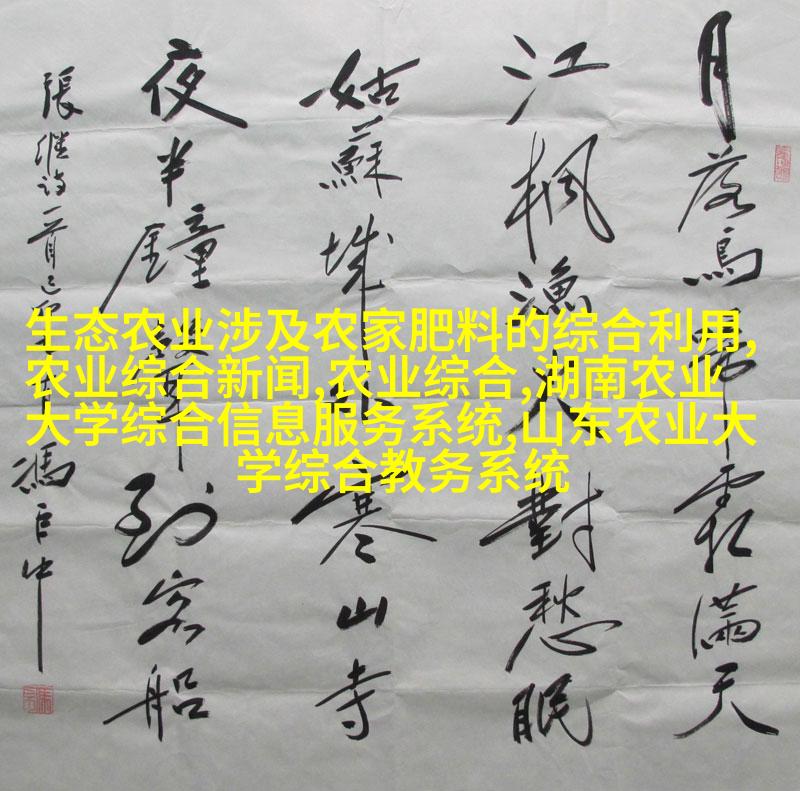 月落烏啼霜滿天
江楓漁火對愁眠
姑蘇城外寒山寺
夜半鐘聲到客船
張继诗一首
生态农业涉及农家肥料的综合利用,
农业综合新闻,农业综合,湖南农业
大学综合信息服务系统,山东农业大
学综合教务系统